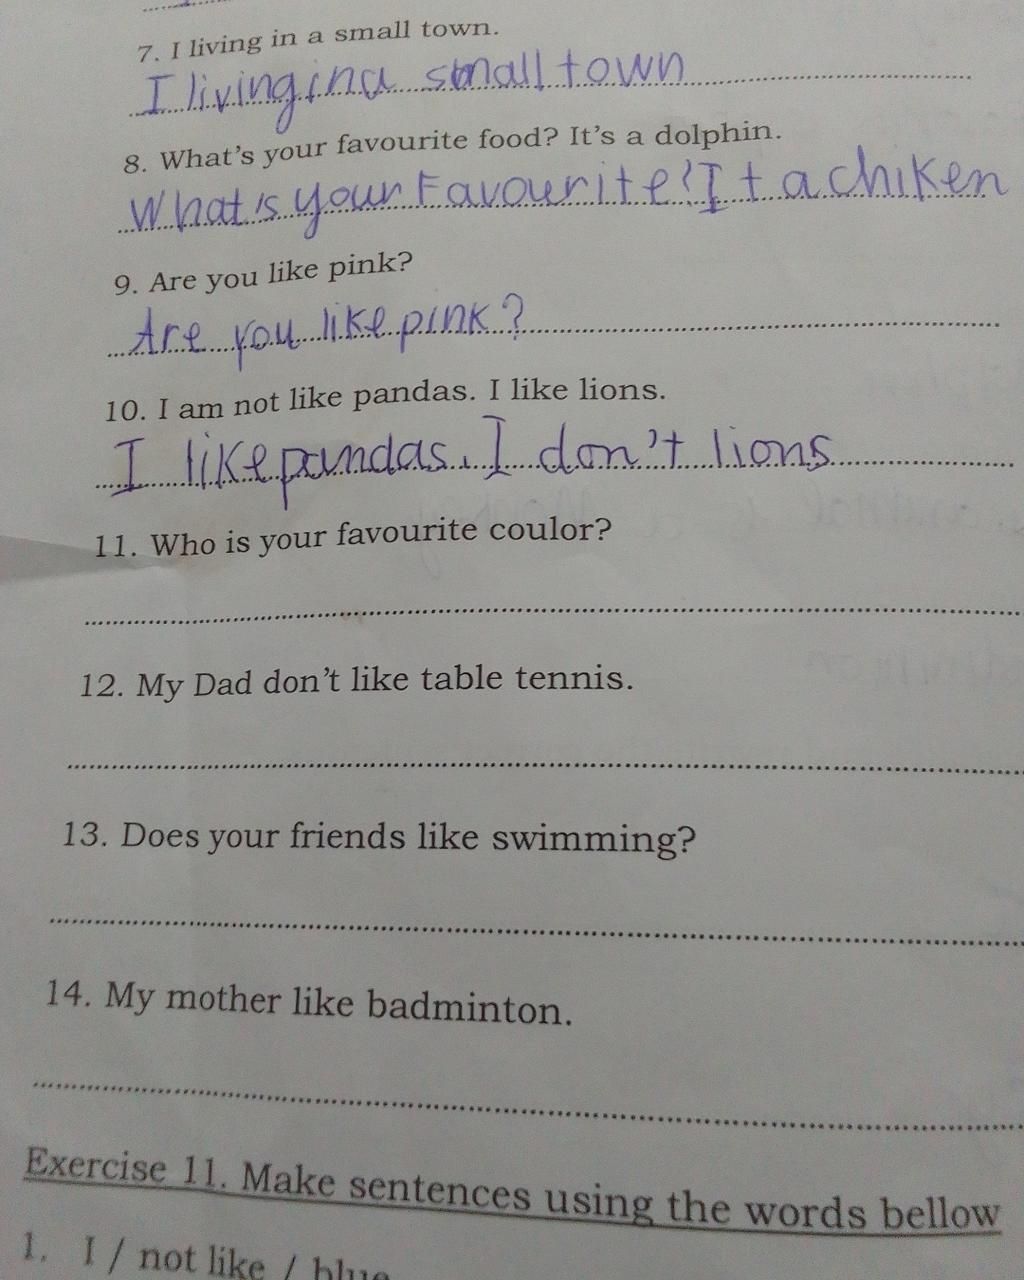 7. I living in a small town.
I living in a small town
8. What's your favourite food? It's a dolphin.
What's your Favourite? It a chiken
9. Are you like pink?
Are you like pink?
10. I am not like pandas. I like lions.
I like pandas. I don't lions
11. Who is your favourite coulor?
12. My Dad don't like table tennis.
13. Does your friends like swimming?
14. My mother like badminton.
Exercise 11. Make sentences using the words bellow
1. I / not like / blue